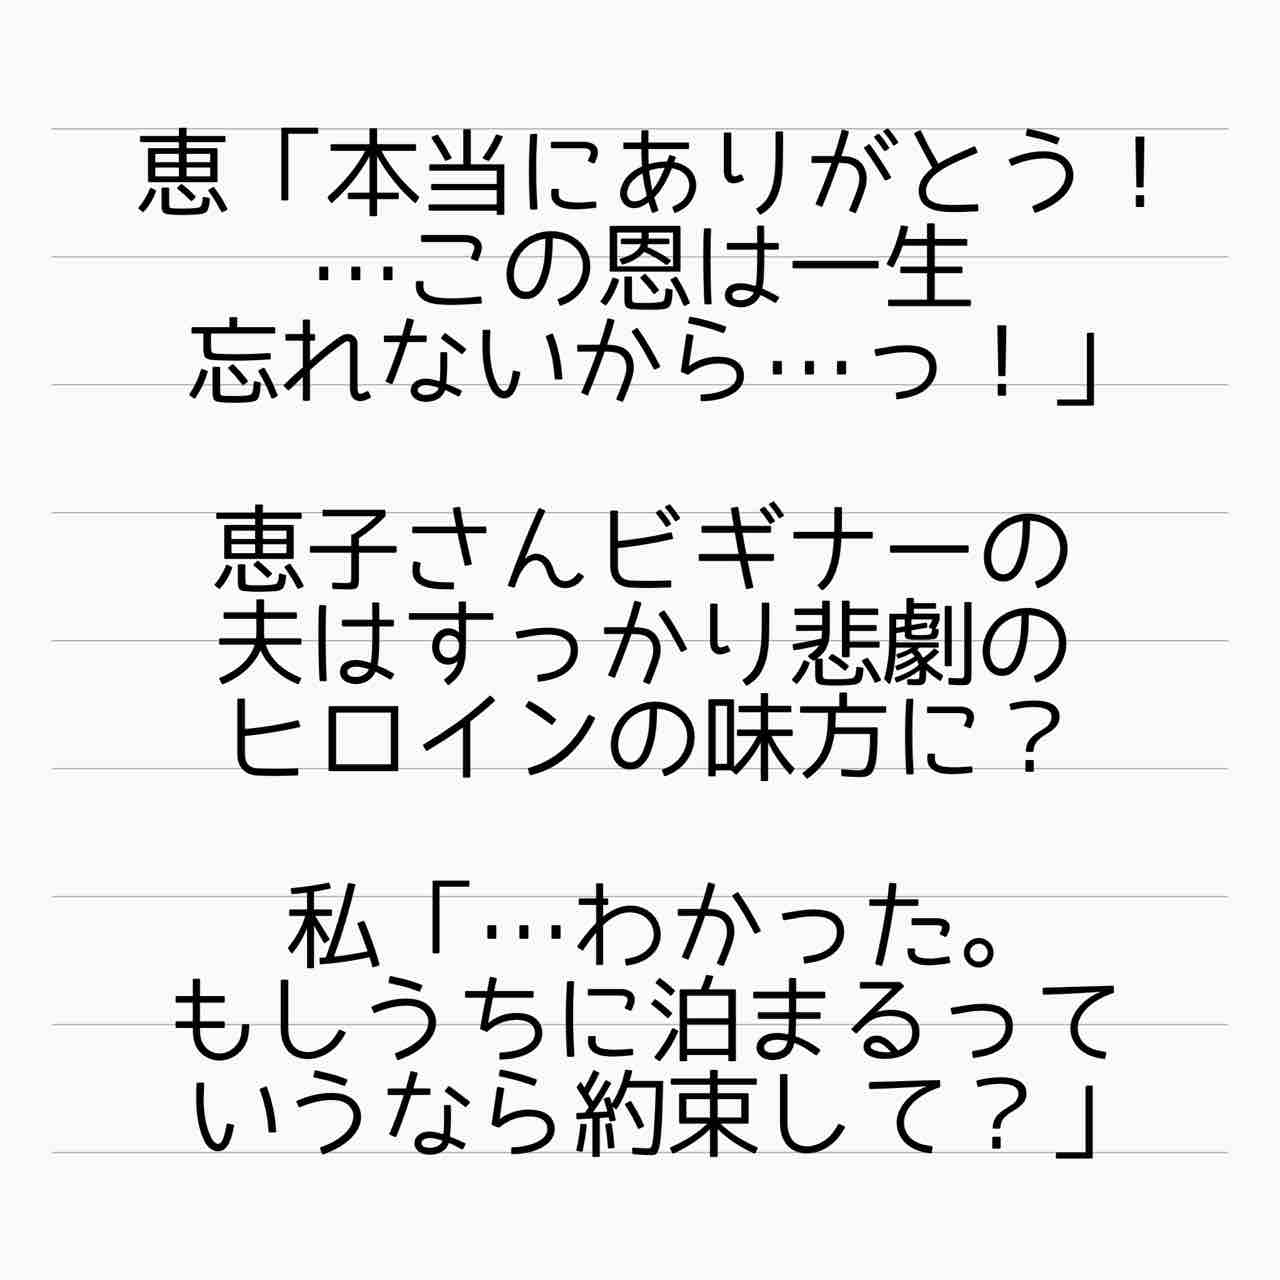 恵「本当にありがとう！
…この恩は一生
忘れないから…っ！」
恵子さんビギナーの
夫はすっかり悲劇の
ヒロインの味方に？
私「…わかった。
もしうちに泊まるって
いうなら約束して？」